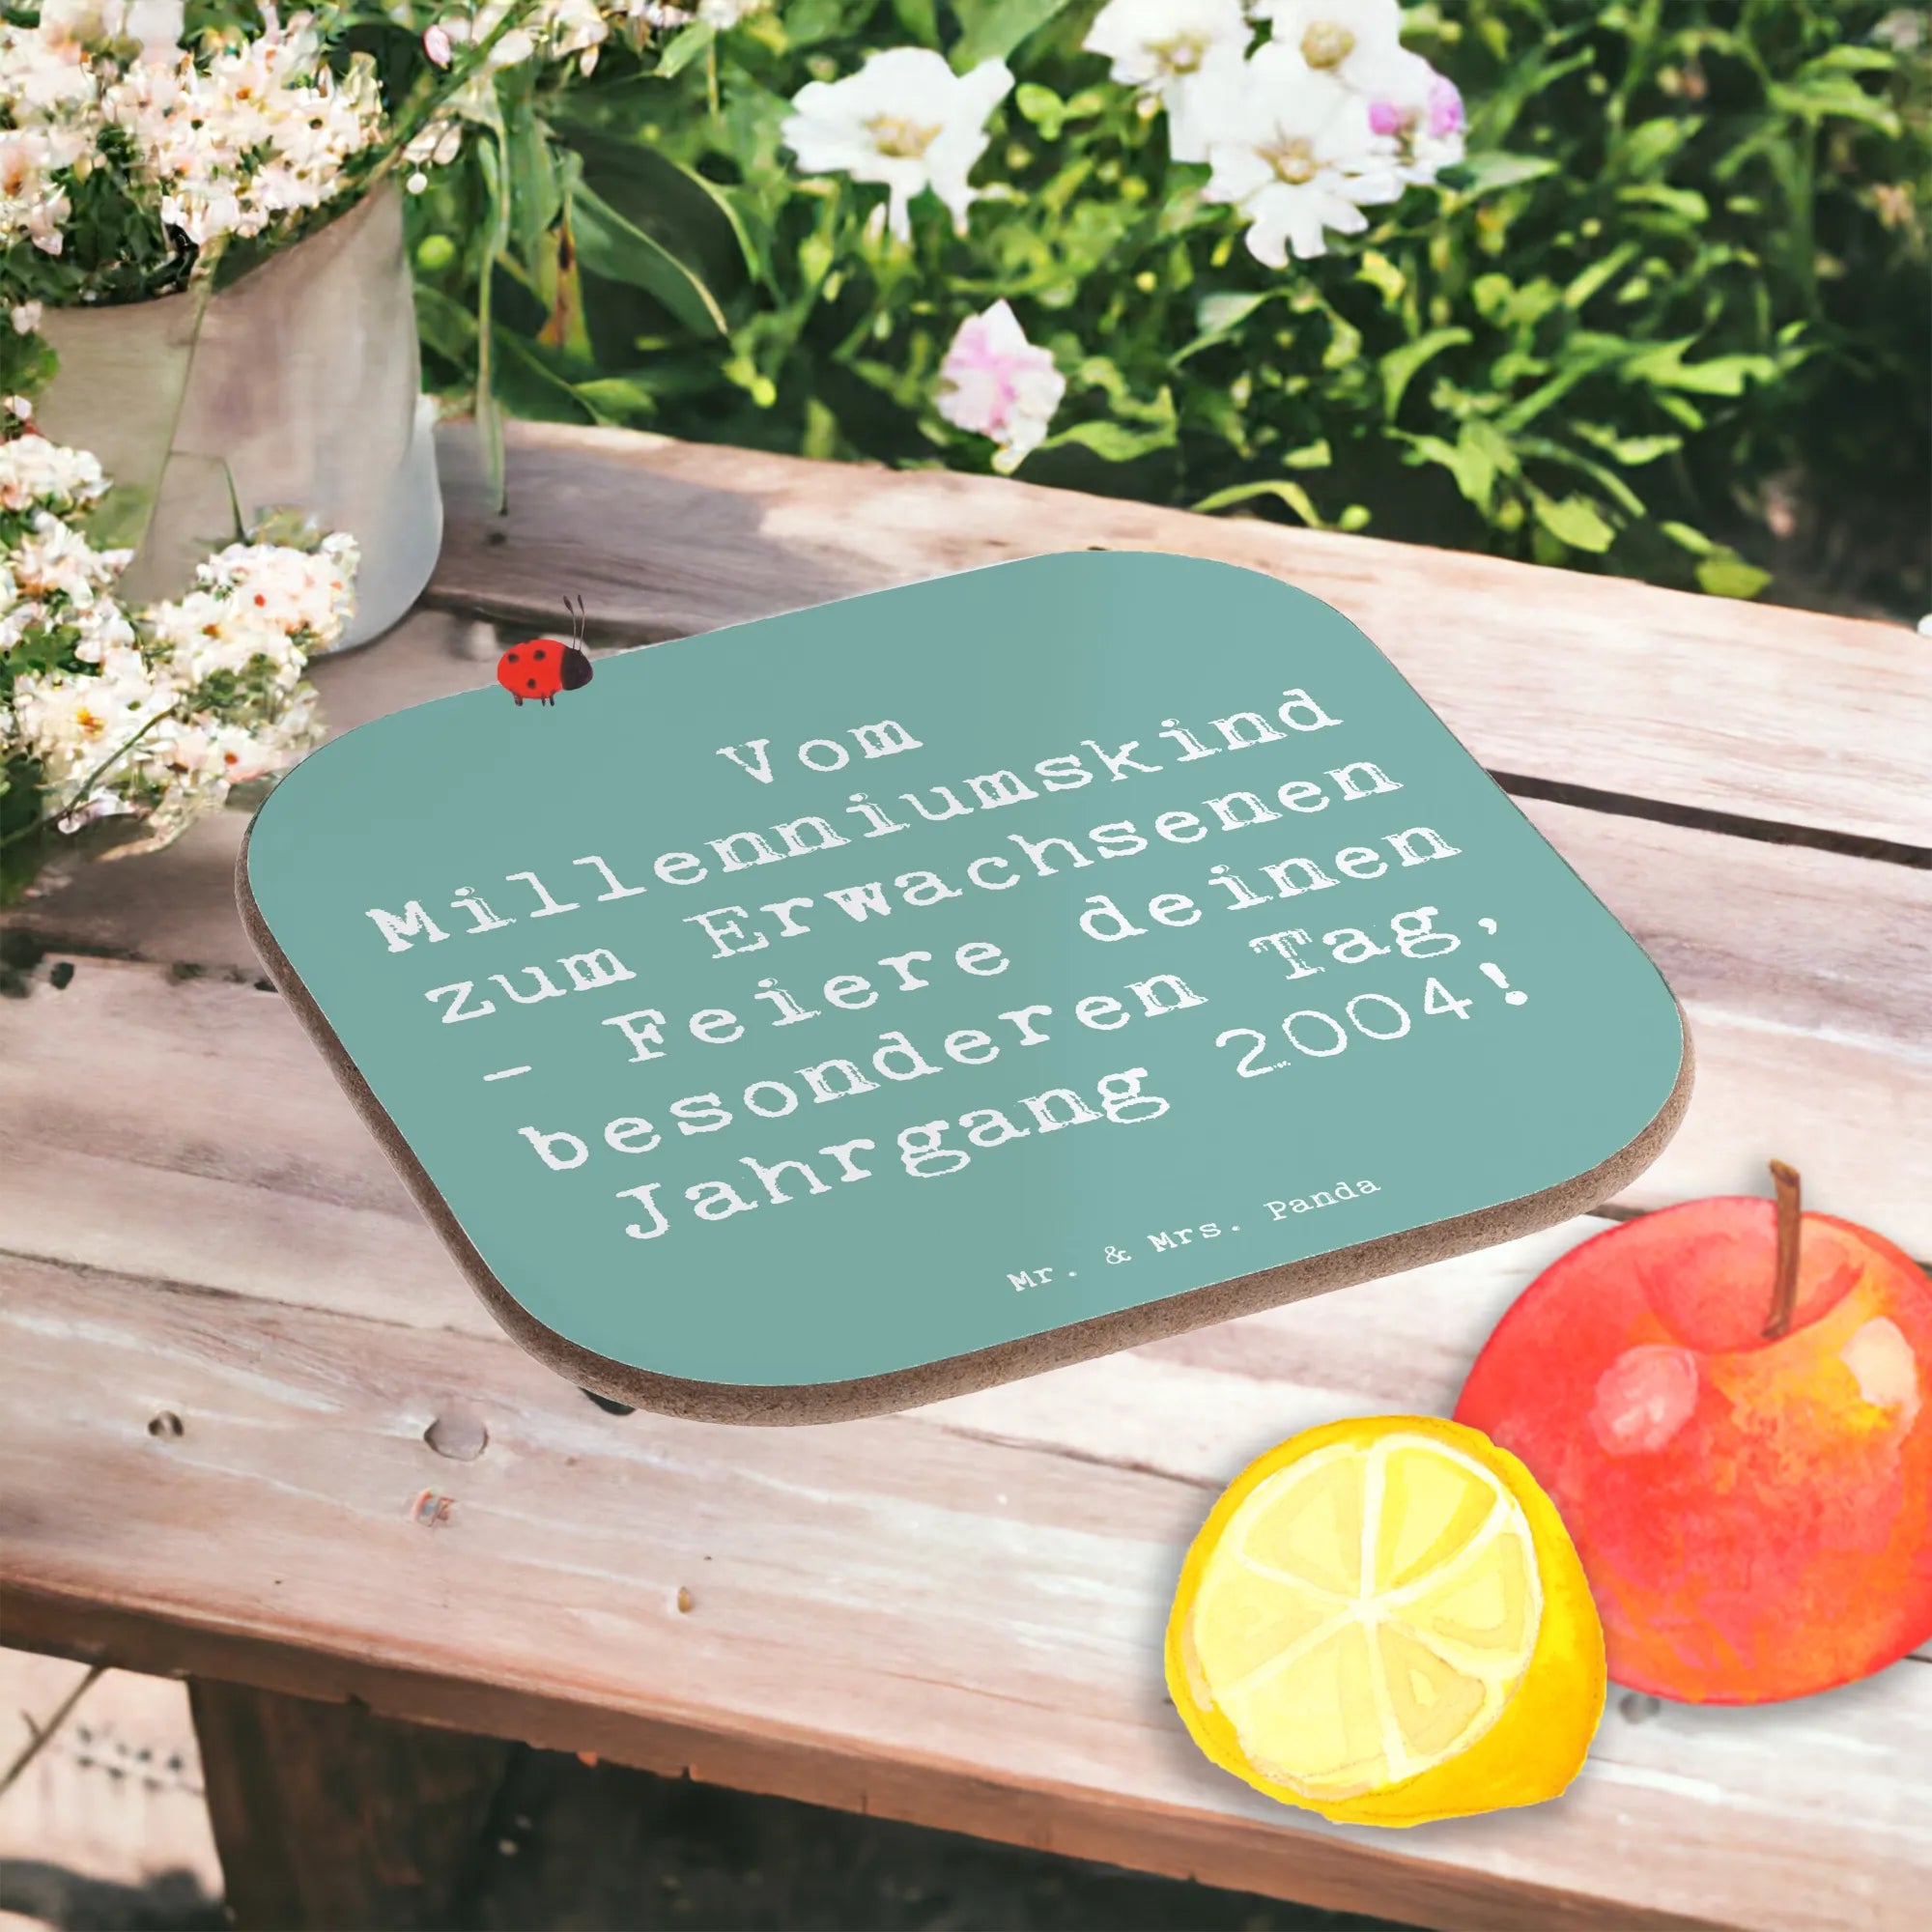 Vom
Millenniumskind
zum Erwachsenen
- Feiere deinen
besonderen Tag,
Jahrgang 2004!
Mr. & Mrs. Panda